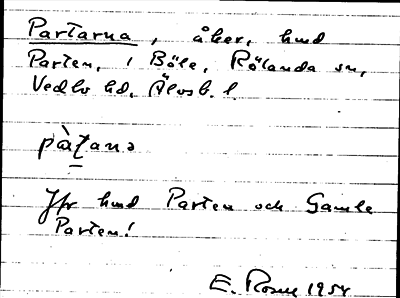 Partarna, åker, hmd
Parten, i Böle, Rölanda sn,
Vedbo hd, Älvsb. l.
pàʈana
Jfr hmd Parten och Gamle
Parten!
E. Rosell 1954